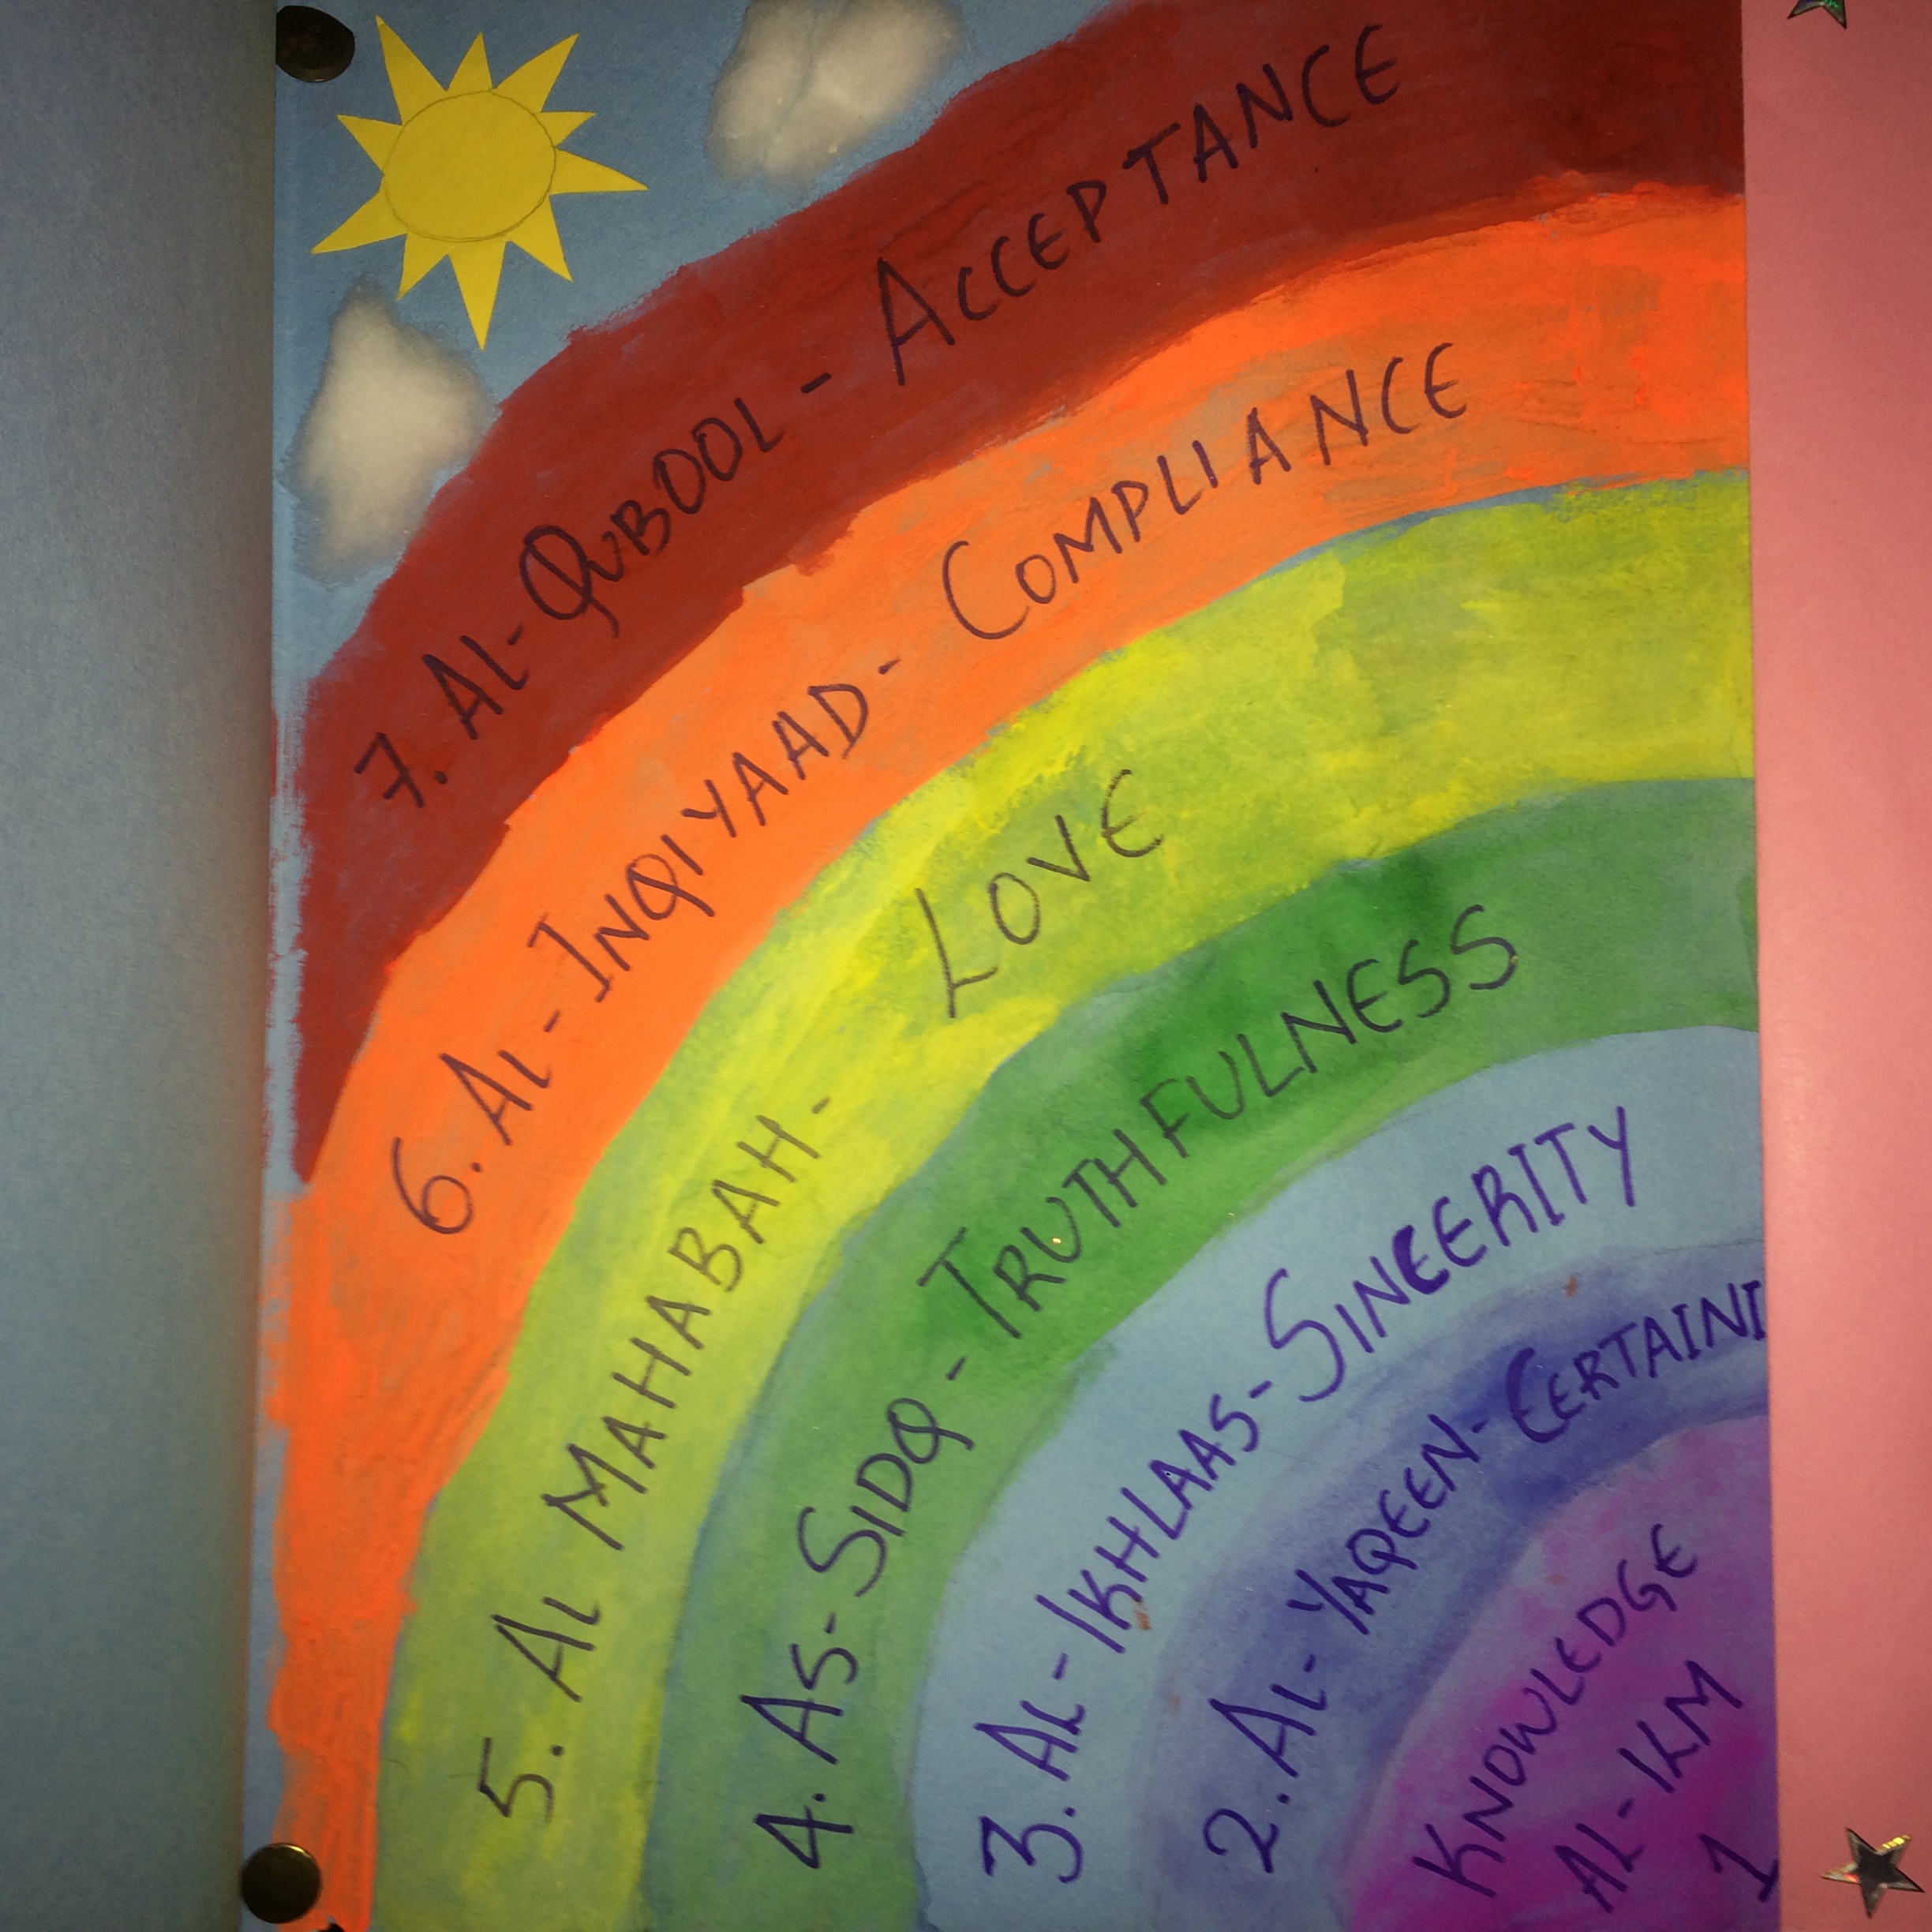 7. AL-QUBOOL - ACCEPTANCE
6. AL-INQIYAAD - COMPLIANCE
5. AL MAHABAH - LOVE
4. AS-SIDQ - TRUTHFULNESS
3. AL-IKHLAAS-SINCERITY
2. AL-YAQEEN-CERTAINI
KNOWLEDGE
AL-ILM
1